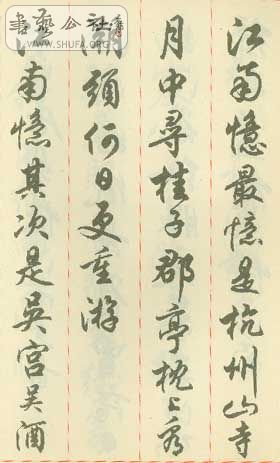 江南憶最憶是杭州山寺
月中尋桂子郡亭枕上看
潮頭何日更重游
江南憶其次是吳宮吴酒
書藝公社
WWW.SHUFA.ORG